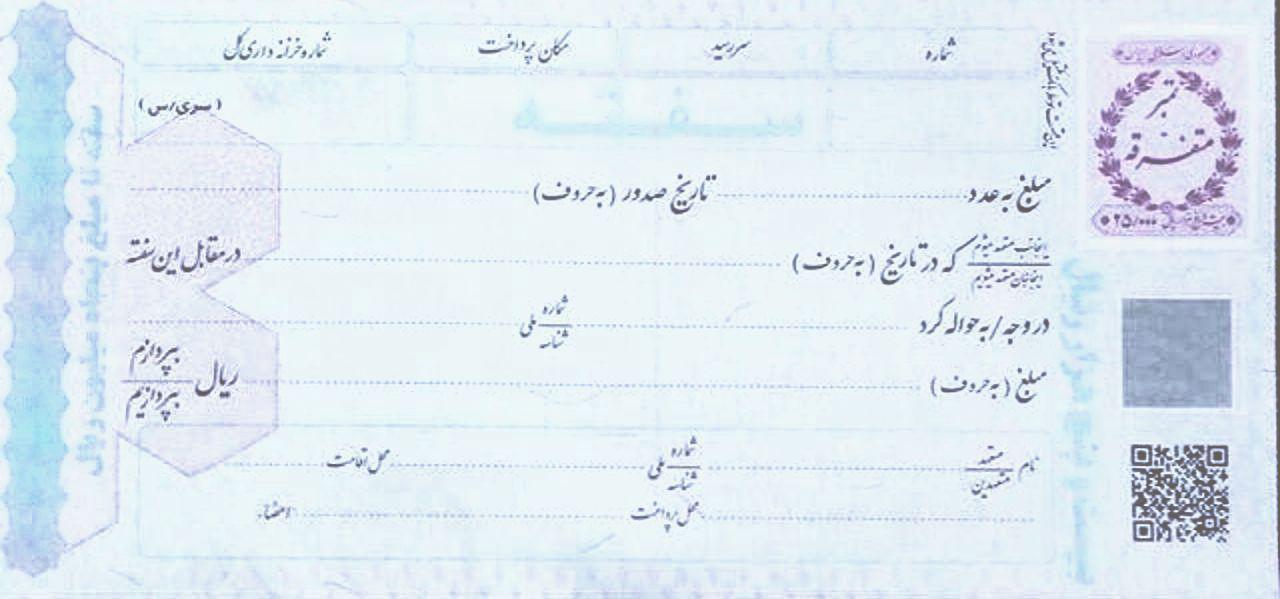 شماره سررسید مکان پرداخت شماره خزانه داری کل
(سری/س)
سفته
مبلغ به عدد تاریخ صدور (به حروف)
اینجانب متعهد میشوم
اینجانبان متعهد میشویم
که در تاریخ (به حروف) در مقابل این سفته
در وجه / به حواله کرد شماره ملی
شناسه
مبلغ (به حروف) ریال بپردازم
بپردازیم
نام متعهد شماره ملی محل اقامت
متعهدین شناسه
محل پرداخت امضاء
جمهوری اسلامی ایران
تمبر
متفرقه
۲۵/۰۰۰
سفته تا مبلغ پنجاه میلیون ریال
بیست و پنج هزار ریال